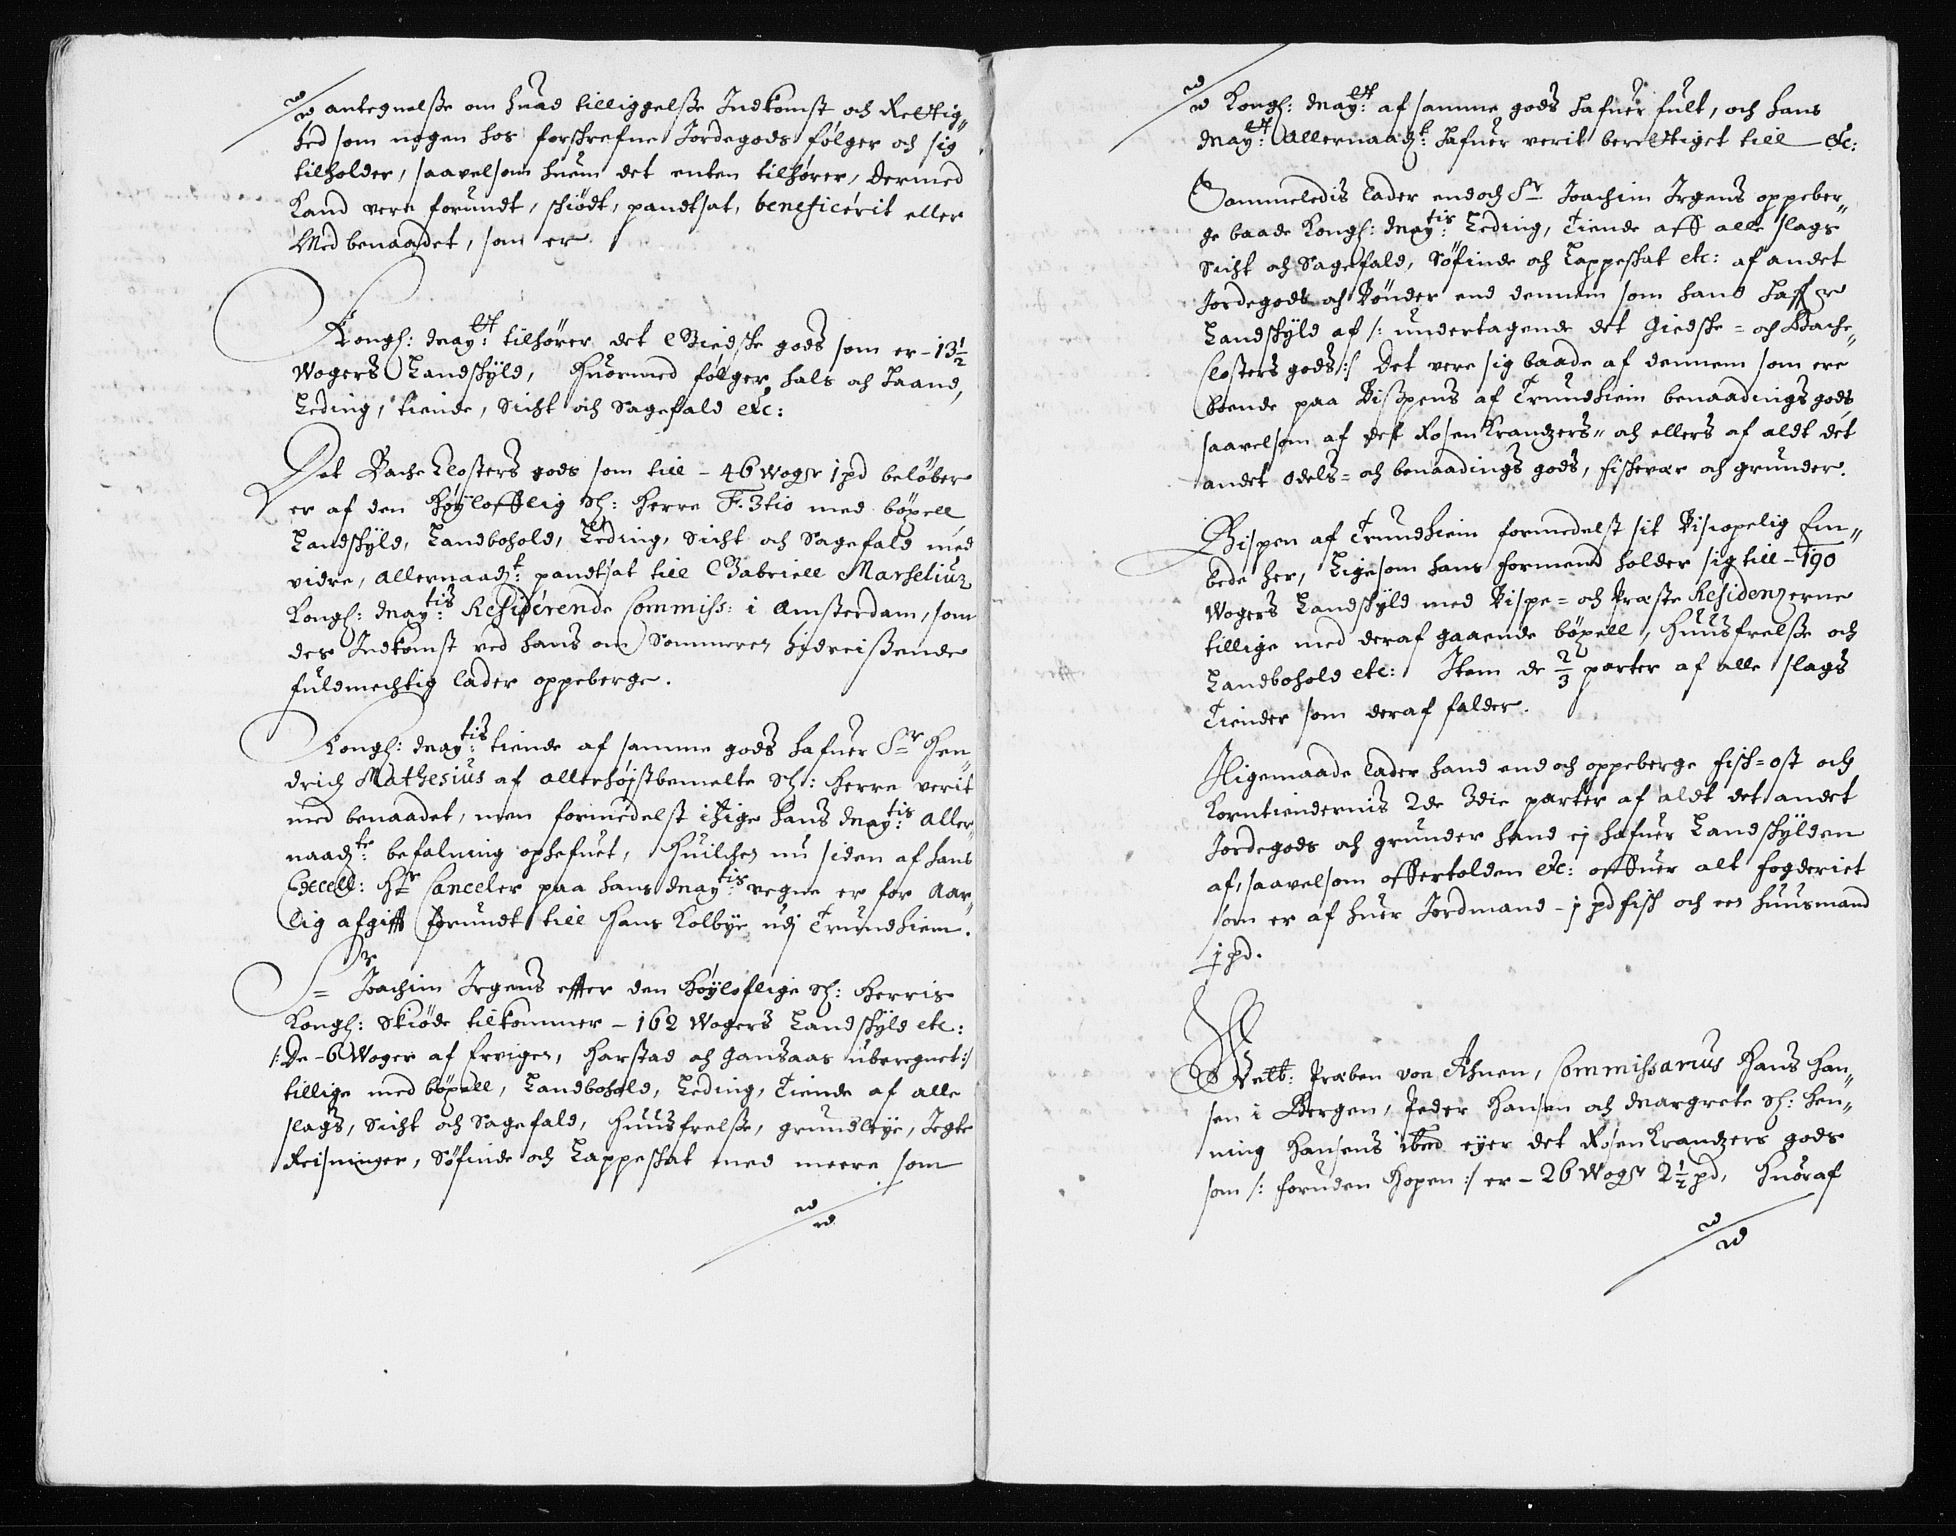 antegnelsse om huad tilliggelsse Indkomst och Rettig„
hed som nogen hos forschrefne Jordegods følger och sig
tilholder, saavelsom huem det enten tilhører, dermed
kand vere forundt, schiødt, pandtsat, beneficérit eller
Med benaadet, som er.
Kongl: May:tt tilhører det Giedsche gods som er - 13½
Wogers Landschyld, huormed følger hals och haand,
Leding, tiende, Sicht och Sagefald etc:
Det Bache Closters gods som till - 46 Woger 1 pd beløber
er af den Høylofflig Sl: Herre F. 3tio med bøxell
Landschyld, Landbohold, Leding, Sicht och Sagefald med
vidre, allernaad:t pandtsat till Gabriell Marselius
Kongl: May:tis Residérende Commiss: i Amsterdam, som
des Indkomst ved hans om Sommeren hidreissende
fuldmechtig lader oppeberge.
Kongl: May:tis tiende af samme gods hafuer Sr Hen„
drich Mathesius af allerhøjstbemelte Sl: Herre verit
med benaadet, men formedelst itzige hans May:tis aller„
naad:te befalning ophefuet, huilchen nu siden af hans
Excell: Hr Canceler paa hans May:tis vegne er for Aar„
lig afgifft forundt till Hans Kolbye udj Trundhiem.
Sr Joachim Irgens effter den høyloflige Sl: Herris
Kongl: Skiøde tilkommer - 162 Wogers Landschyld etc:
/: De - 6 Woger af Ervigen, Harstad och Gansaas uberegnet :/
tillige med bøxell, Landbohold, Leding, Tiende af alle
slags, Sicht och Sagefald, huusfrelsse, grundleye, Jegte
Reisninger, Søfinde och Lappeschat med meere som
Kongl: May:tt af samme gods hafuer fult, och hans
May:tt Allernaad:t hafuer verit berettiget till etc:
Sammeledis lader endoch Sr Joachim Irgens oppeber„
ge baade Kongl: May:tis Leding, Tiende aff alle slags
Sicht och Sagefald, Søfinde och Lappeschat etc: af andet
Jordegods och Bønder end dennem som hand haffer
Landschyld af /: undertagende det Giedsche= och Bache„
Closters gods :/ Det vere sig baade af dennem som ere
boende paa Bispens af Trundhiem benaadings gods
saavelsom af det Rosenkrandzers„ och ellers af aldt det
andet Odels= och benaadings gods, fischevær och grunder.
Bispen af Trundhiem formedelst sit Biscopelig Em„
bede her, Ligesom hans formend holder sig till - 190
Wogers Landschyld med Bispe= och Præste Residenzerne
tillige med deraf gaaende bøxell, huusfrelsse och
Landbohold etc: Item de ⅔ parter af alle slags
Tiender som deraf falder.
Iligemaade lader hand endoch oppeberge fisch= ost och
Korntiendernis 2de 3die parter af aldt det andet
Jordegods och grunder hand ej hafuer Landschylden
af, saavelsom offertolden etc: offuer alt fogderiet
som er af huer Jordmand - j pd fisch och en huusmand
½ pd.
Velb: Præben von Ahnen, Commissarius Hans Han„
sen i Bergen, Peder Hansen och Margrete Sl: Hen„
ning Hansens ibed eyer det Rosenkrandzers gods
som /: foruden Hopen :/ er - 26 Woger 2½ pd, huoraf